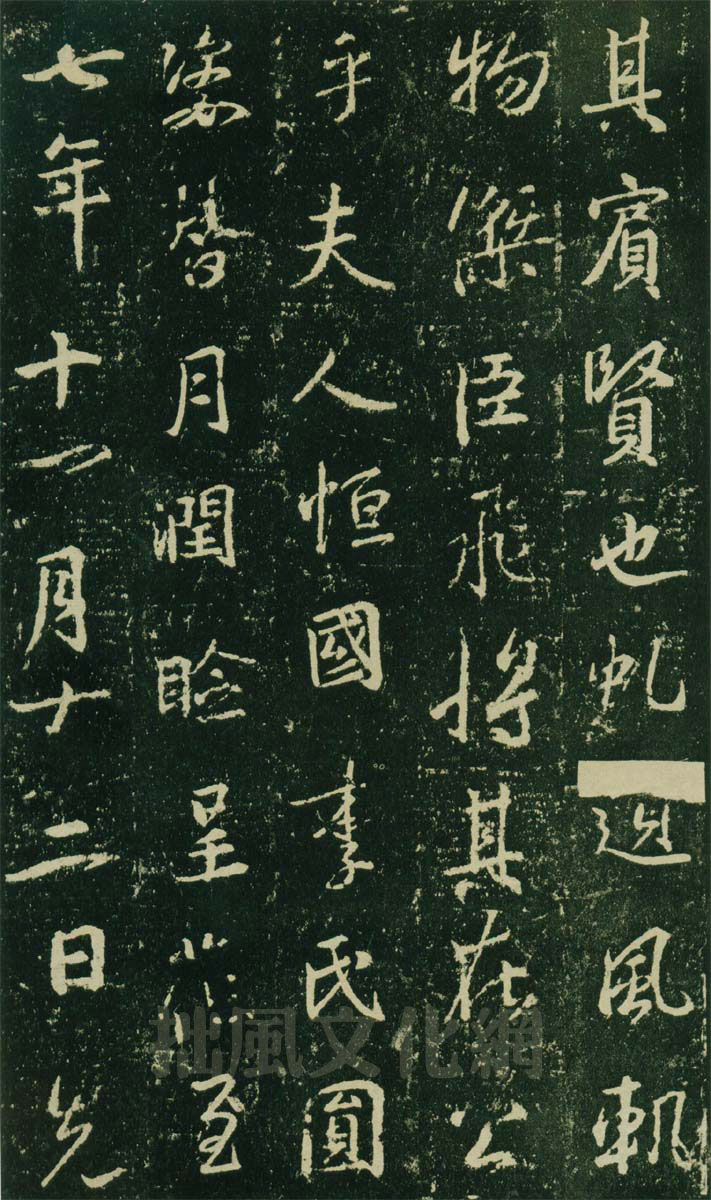 其賓賢也虬風軌
物傑臣飛將其在公
乎夫人恒國李氏圓
姿替月潤臉呈花至
七年十一月十二日先
拙風文化網